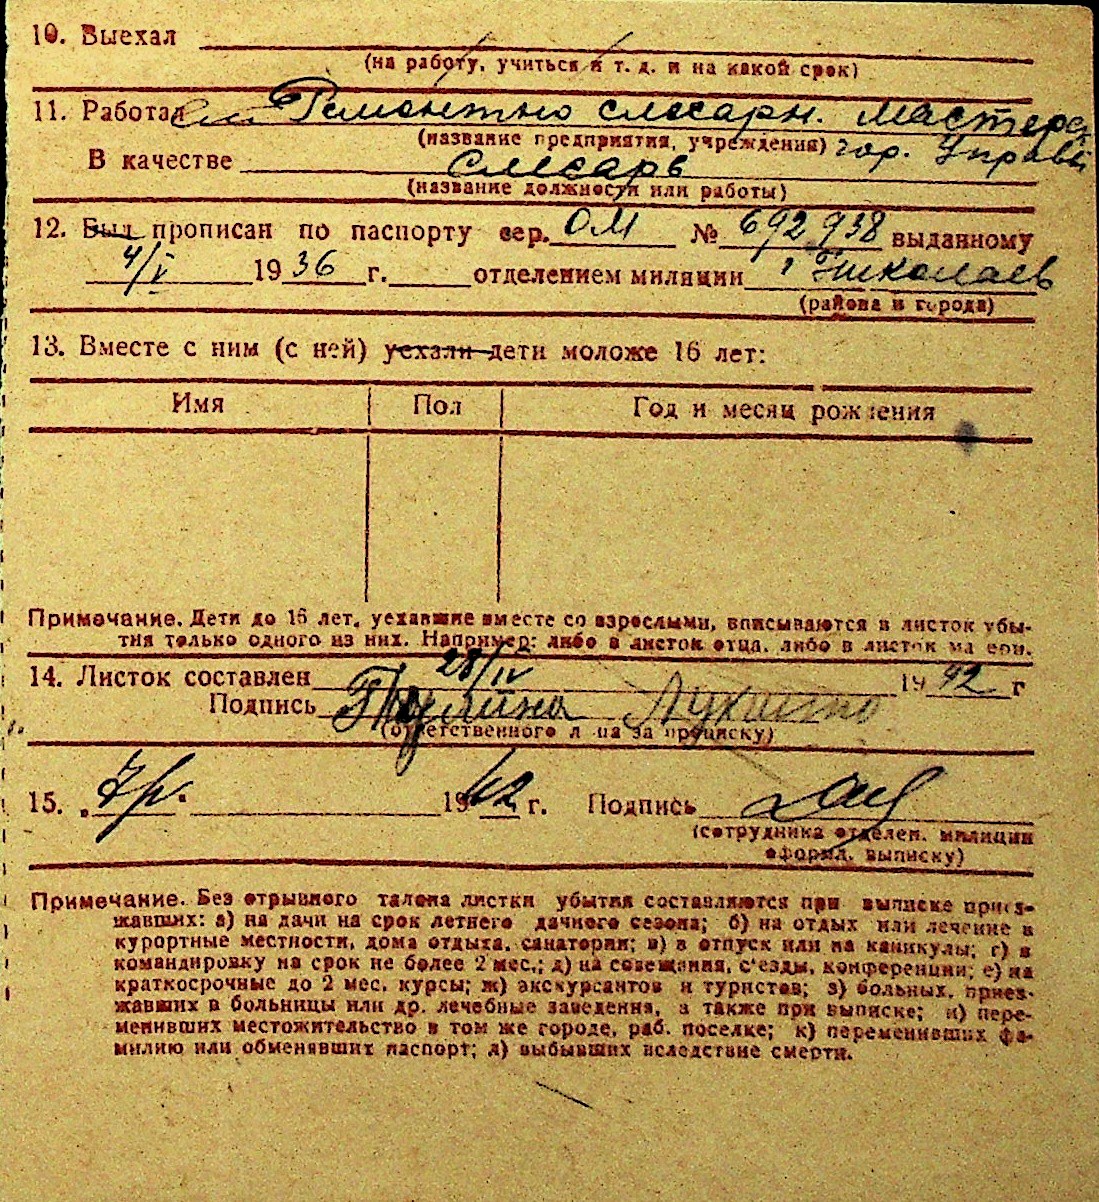 10. Выехал
(на работу, учиться и т. д. и на какой срок)
11. Работал Ремонтно слесарн. мастерск
(название предприятия, учреждения) гор. Управы
В качестве слесарь
(название должности или работы)
12. Был прописан по паспорту сер. ОМ № 692938 выданному
4/V 1936 г. отделением милиции г Николаев
(района и города)
13. Вместе с ним (с ней) уехали дети моложе 16 лет:
Имя Пол Год и месяц рождения
Примечание. Дети до 16 лет, уехавшие вместе со взрослыми, вписываются в листок убы-
тия только одного из них. Например: либо в листок отца, либо в листок матери.
14. Листок составлен 28/IV 1942 г
Подпись
(ответственного лица за прописку)
15. 1942 г. Подпись
(сотрудника отделен. милиции
оформл. выписку)
Примечание. Без отрывного талона листки убытия составляются при выписке приез-
жавших: а) на дачи на срок летнего дачного сезона; б) на отдых или лечение в
курортные местности, дома отдыха, санатории; в) в отпуск или на каникулы; г) в
командировку на срок не более 2 мес.; д) на совещания, с'езды, конференции; е) на
краткосрочные до 2 мес. курсы; ж) экскурсантов и туристов; з) больных, приез-
жавших в больницы или др. лечебные заведения, а также при выписке; и) пере-
менивших местожительство в том же городе, раб. поселке; к) переменивших фа-
милию или обменявших паспорт; л) выбывших вследствие смерти.